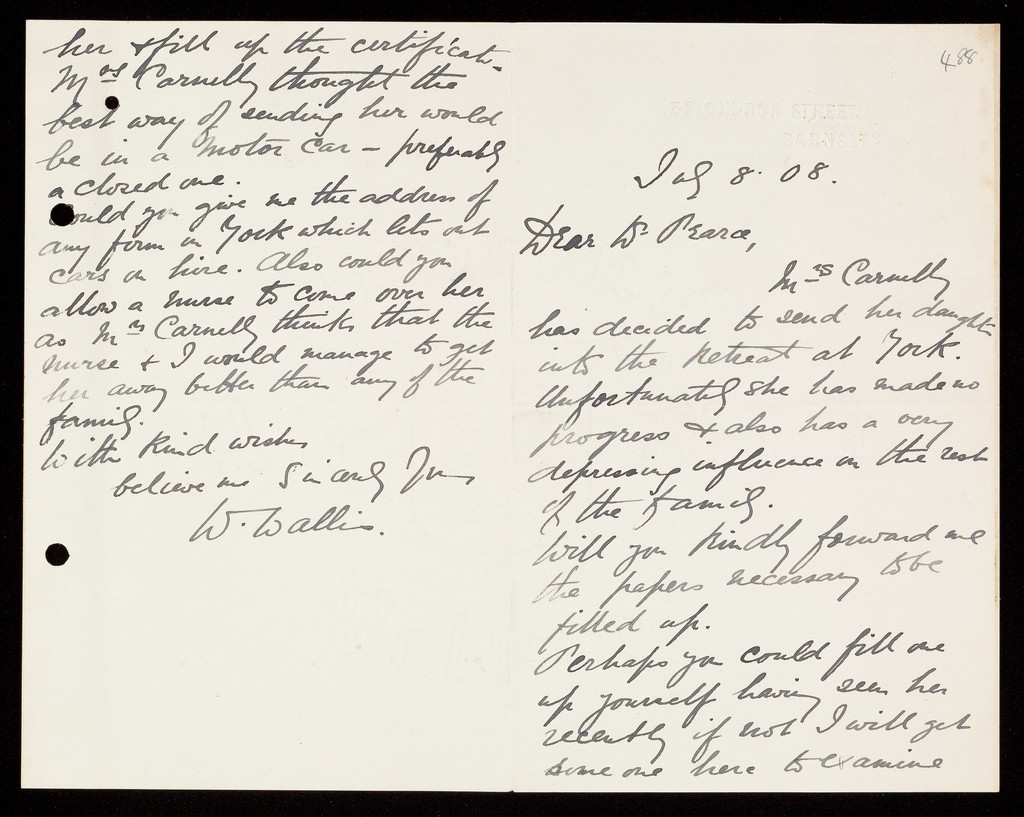 488
CHURCH STREET
BARNSLEY
July 8. 08.
Dear Dr Pearce,
Mrs Carnelly
has decided to send her daughter
into the Retreat at York.
Unfortunately she has made no
progress & also has a very
depressing influence on the rest
of the family.
Will you kindly forward me
the papers necessary to be
filled up.
Perhaps you could fill one
up yourself having seen her
recently if not I will get
some one here to examine
her & fill up the certificate
Mrs Carnelly thought the
best way of sending her would
be in a motor car – preferably
a closed one.
Could you give me the address of
any firm in York which lets out
cars on hire. Also could you
allow a nurse to come over her
as Mrs Carnelly thinks that the
nurse & I would manage to get
her away better than any of the
family.
With kind wishes
believe me Sincerely Yrs
W. Wallis.